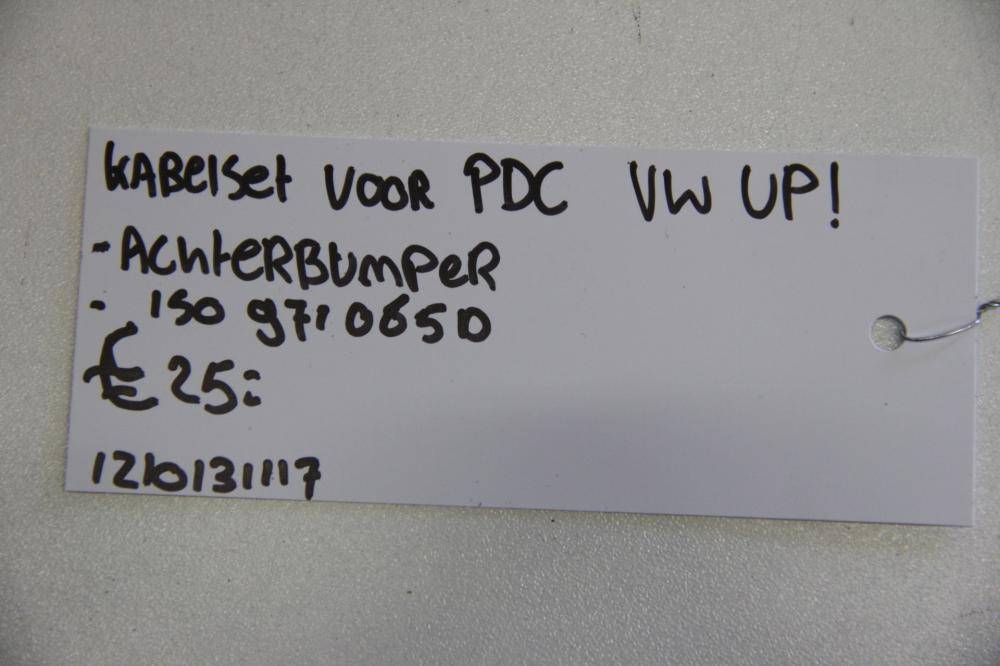 KABelSet VOOR PDC VW UP!
- AChteRBumPeR
- 1S0 971 065 D
€ 25:
1210131117